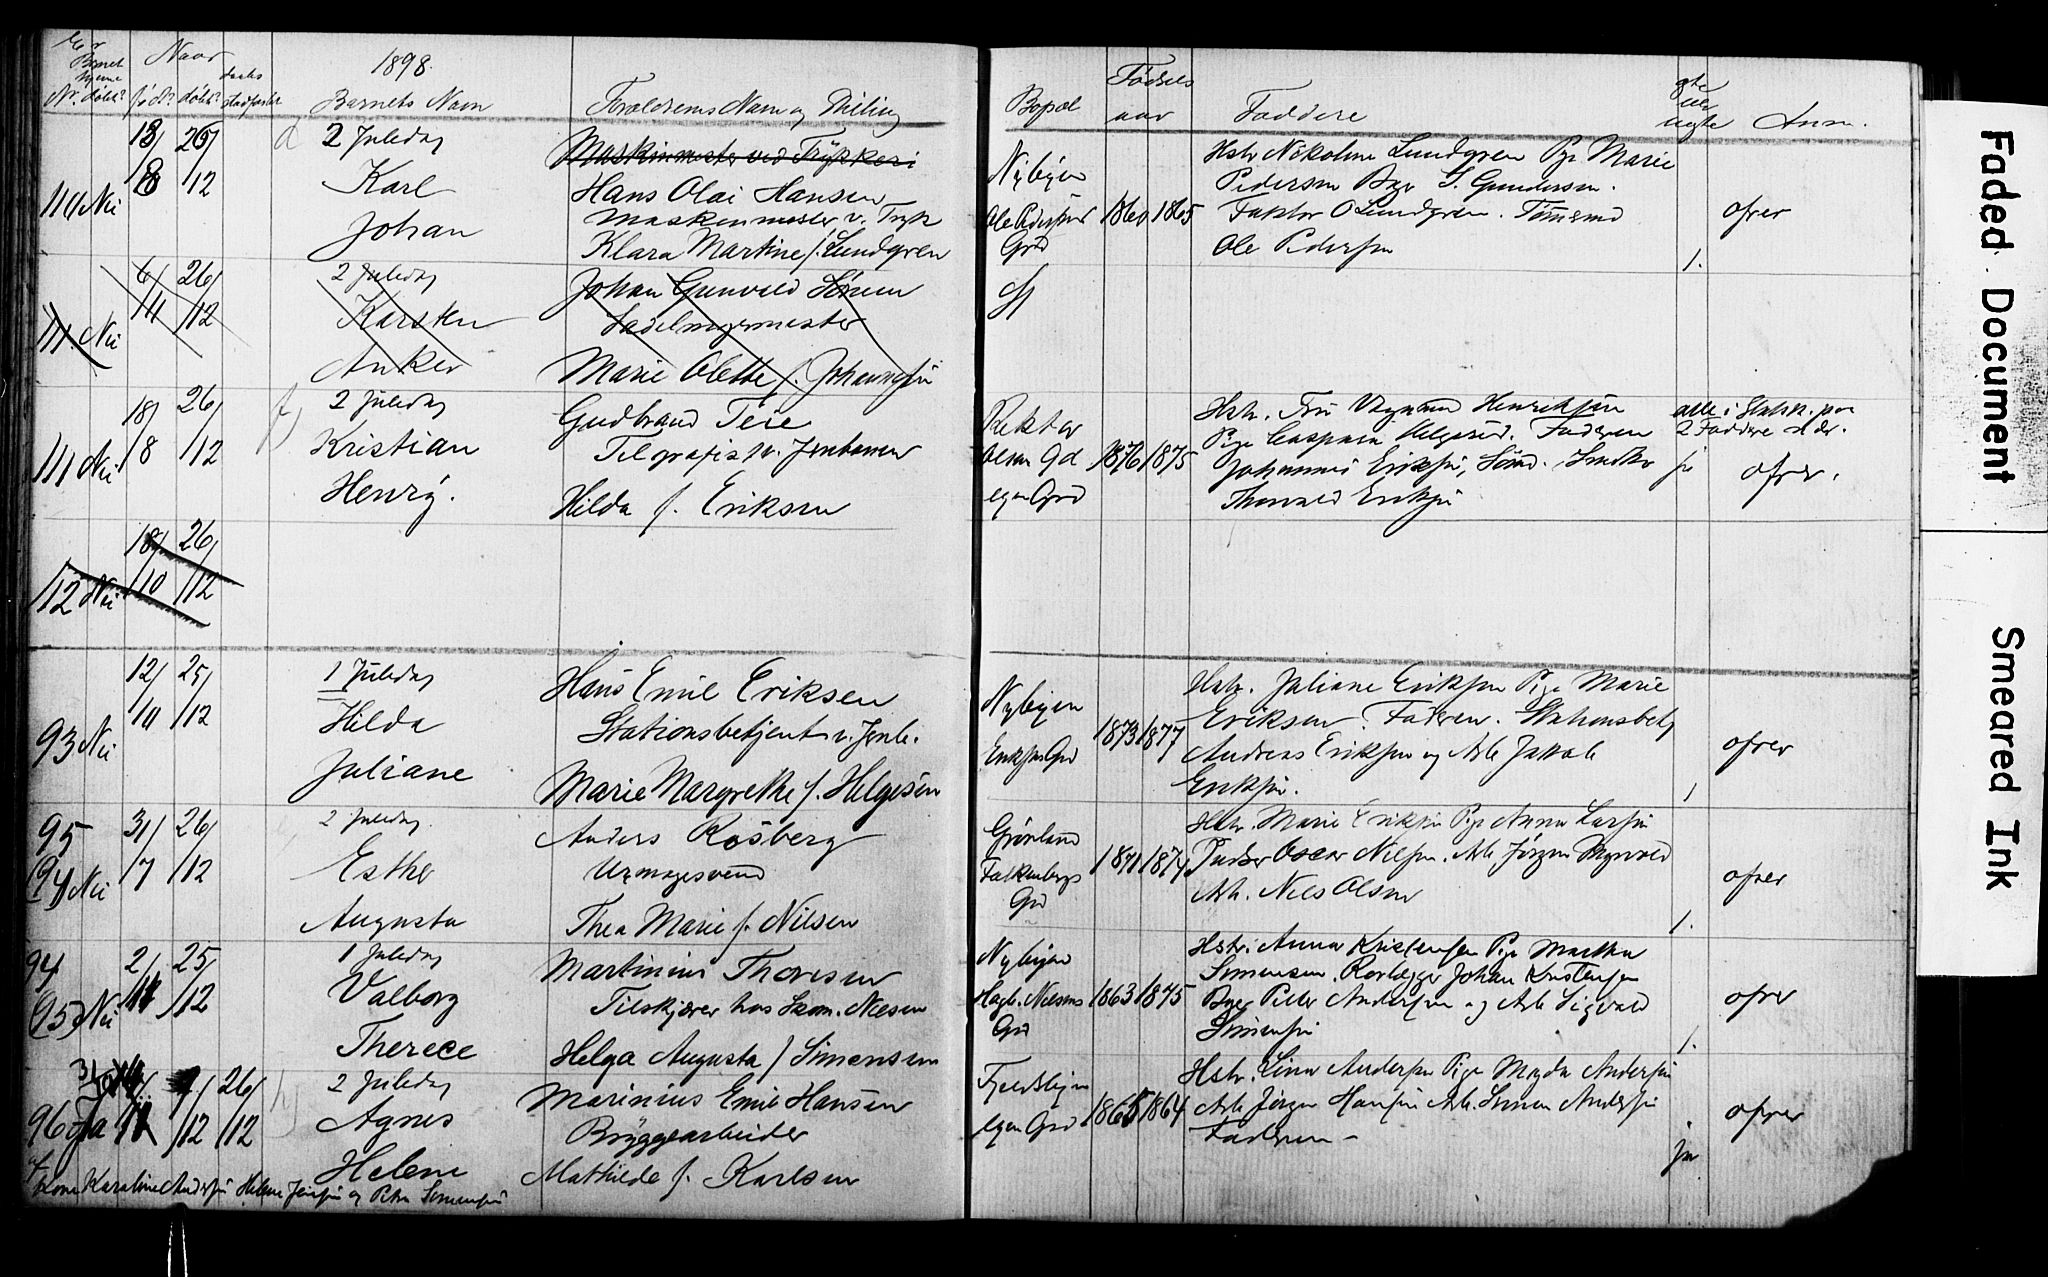 Er Barnet hjemme døbt? Naar 1898.
Nr. født døbt Barnets Navn Forældrenes Navn og Stilling
Bopæl Fødselsaar Faddere ægte uægte Anm.
110 Nei 18/8 26/12
2 Juledag
Karl
Johan
Maskinmester ved Trykkeri
Hans Olai Hansen
Maskinmester v. Tryk
Klara Martine f. Lundgren
Nybyen
Ole Pedersens
Grd
1860 1865
Hstr Nikoline Lundgren Pge Marie
Pedersen Bgr S. Gundersen.
Faktor O Lundgren. Tømmd
Ole Pedersen
1.
ofrer
111 Nei 6/11 26/12
2 Juledag
Karsten
Anker
Johan Grunvald
Sadelmagermester
Marie Olette f. Johannesen
111 Nei 18/8 26/12
2 Juledag
Kristian
Henry.
Gudbrand Teie
Telegrafist v. Jernbanen
Hilda f. Eriksen
Rektor
Olsen Gd
egen Grd
1876 1875
Hstr. Fru Henriksen
Pge Helgerud. Faderen
Johannes Eriksen, Sømd. Smed
Thorvald Eriksen
2 Faddere
ja
ofrer.
112 Nei 18/10 26/12
93 Nei 12/10 25/12
1 Juledag
Hilda
Juliane
Hans Emil Eriksen
Stationsbetjent v. Jernb.
Marie Margrethe f. Helgesen
Nybyen
Eriksens Grd
1873 1877
Hstr. Juliane Eriksen Pge Marie
Eriksen. Faderen. Stationsbetj
Andreas Eriksen og Arb Jakob
Eriksen.
1
ofrer
95
(94) Nei 31/7 26/12
2 Juledag.
Esther
Augusta
Anders Rosberg
Urmagersvend
Thea Marie f. Nilsen
Grønland
Falkenbergs
Grd
1871 1874
Hstr. Marie Eriksen Pge Anna Larsen
Pudser Oscar Nilsen. Arb Jørgen
Arb. Nils Olsen
1.
ofrer
94
(95) Nei 2/11 25/12
1 Juledag
Valborg
Therece
Martinius Thoresen
Tilskjærer hos Skom. Nielsen
Helga Augusta f Simensen
Nybyen
Hagb. Nilsens
Grd
1863 1875
Hstr. Anna Kristensen Pge Martha
Simensen. Rørlægger Johan Kristensen
Bgr Peder Andersen og Arb Sigvald
Simensen
1.
ofrer
96 Ja 26/12
2 Juledag
Agnes
Helene
Marinius Emil Hansen
Bryggearbeider
Mathilde f. Karlsen
Fjeldsbyen
egen Grd
1865 1864
Hstr. Lina Andersen Pge Magda Andersen
Arb Jørgen Hansen Arb. Simen Andersen
Faderen -
ja
ofrer
af Kone Karoline Andersen Helene Jensen og Petra Simensen
Faded Document
Smeared Ink